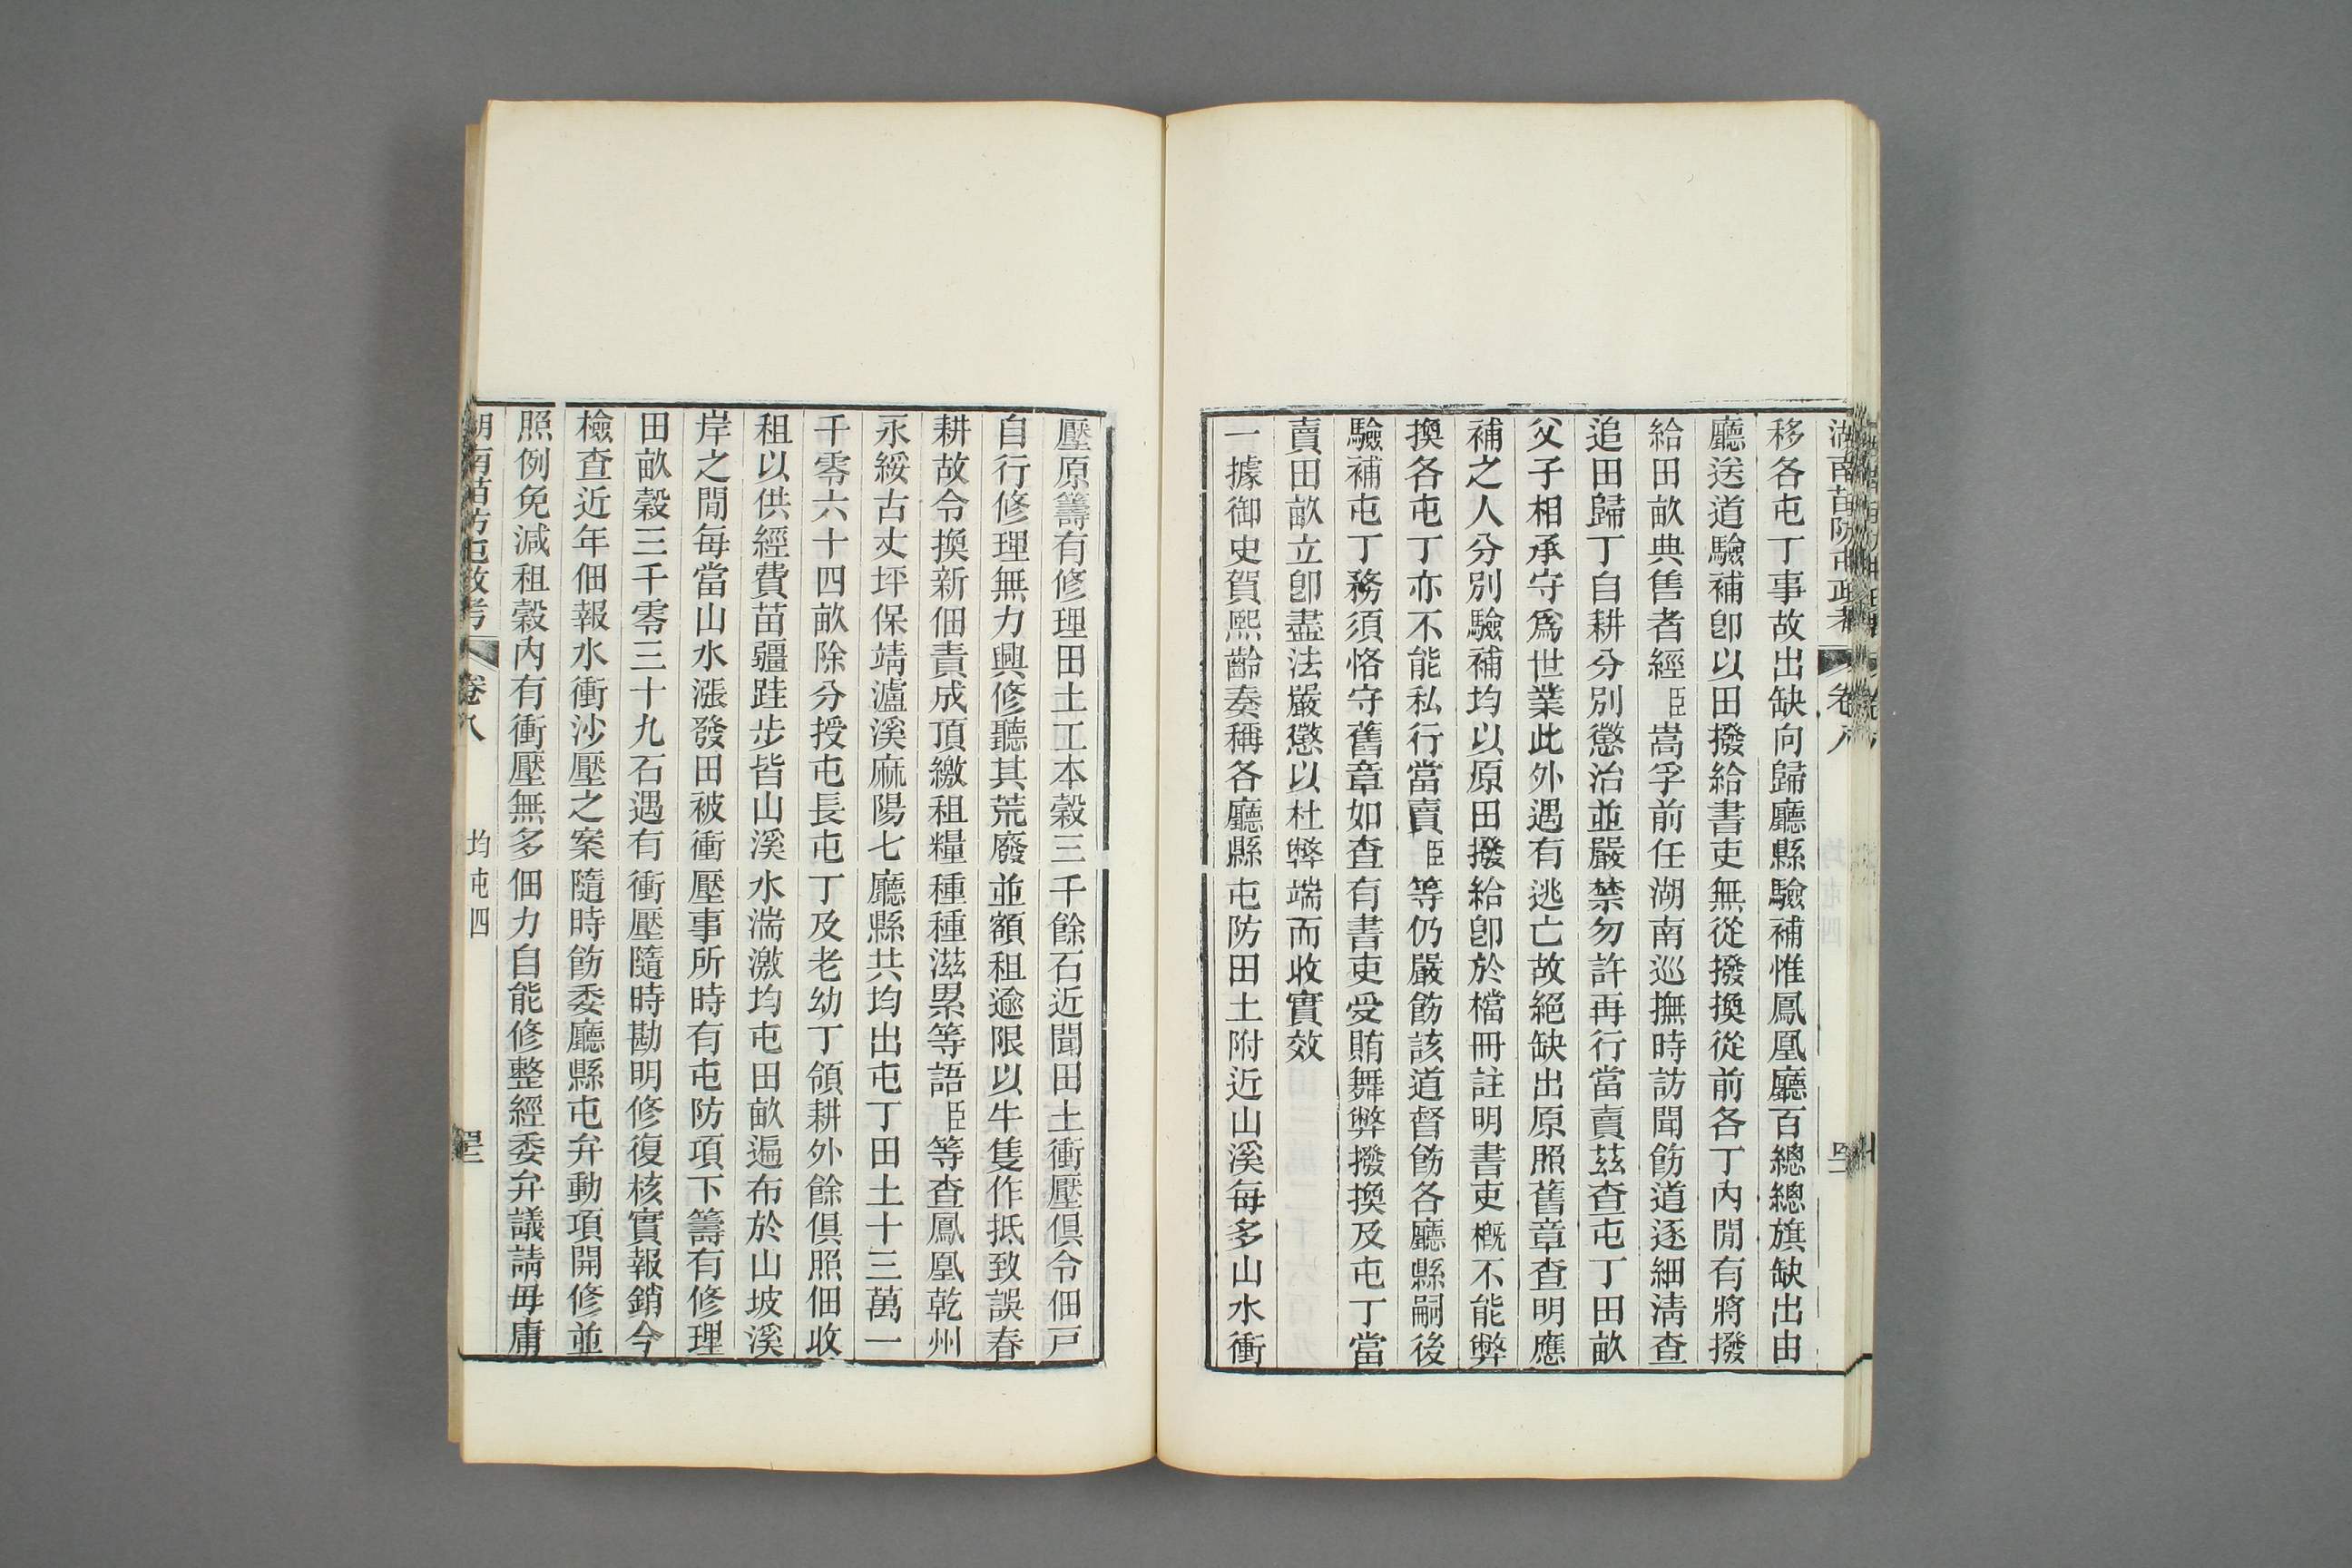 湖南苗防屯政考 卷八
移各屯丁事故出缺向歸廳縣驗補惟鳳凰廳百總總旗缺出由
廳送道驗補卽以田撥給書吏無從撥換從前各丁內閒有將撥
給田畝典售者經臣嵩孚前任湖南巡撫時訪聞飭道逐細清查
追田歸丁自耕分別懲治並嚴禁勿許再行當賣茲查屯丁田畝
父子相承守爲世業此外遇有逃亡故絕缺出原照舊章查明應
補之人分別驗補均以原田撥給卽於檔冊註明書吏槪不能弊
換各屯丁亦不能私行當賣臣等仍嚴飭該道督飭各廳縣嗣後
驗補屯丁務須恪守舊章如查有書吏受賄舞弊撥換及屯丁當
賣田畝立卽盡法嚴懲以杜弊端而收實效
一據御史賀熙齡奏稱各廳縣屯防田土附近山溪每多山水衝
壓原籌有修理田土工本穀三千餘石近聞田土衝壓俱令佃戸
自行修理無力興修聽其荒廢並額租逾限以牛隻作抵致誤春
耕故令換新佃責成頂繳租糧種種滋累等語臣等查鳳凰乾州
永綏古丈坪保靖瀘溪麻陽七廳縣共均出屯丁田土十三萬一
千零六十四畝除分授屯長屯丁及老幼丁領耕外餘俱照佃收
租以供經費苗疆跬步皆山溪水湍激均屯田畝遍布於山坡溪
岸之閒每當山水漲發田被衝壓事所時有屯防項下籌有修理
田畝穀三千零三十九石遇有衝壓隨時勘明修復核實報銷今
檢查近年佃報水衝沙壓之案隨時飭委廳縣屯弁動項開修並
照例免減租穀內有衝壓無多佃力自能修整經委弁議請毋庸
湖南苗防屯政考 卷八 均屯四 四三